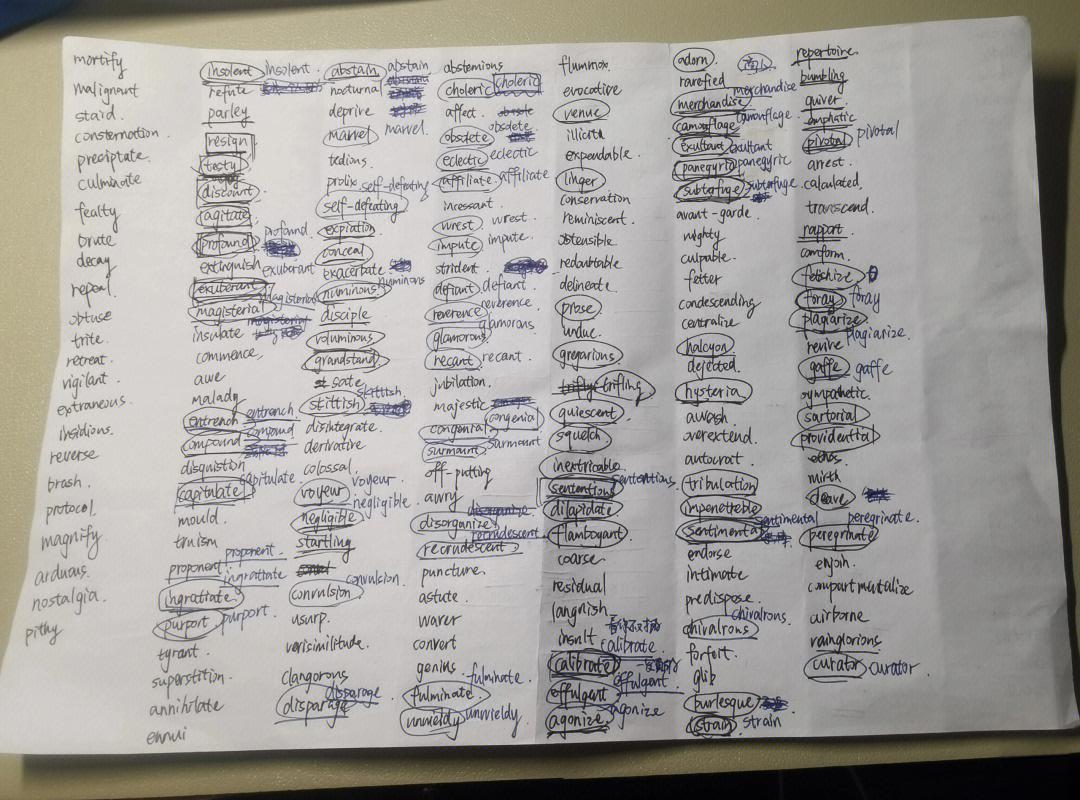 mortify
malignant
staid.
consternation.
preciptate.
culminate
fealty
brute
decay
repeal.
obtuse
trite.
retreat.
vigilant.
extraneous.
insidious.
reverse
brash.
protocol.
magnify
arduous.
nostalgia.
pithy
insolent insolent.
refute
parley
resign
testy
discount
agitate
profound profound.
extinguish
exuberant exuberant
magisterial magisterial
insulate
commence
awe
malady
entrench entrench
compound compound
disquistion
capitulate capitulate
mould.
truism
proponent proponent.
ingratiate ingratiate
purport purport
tyrant
superstition
annihilate
ennui
abstain abstain
nocturnal
deprive
marvel marvel
tedious.
prolix
self-defeating self-defeating
expiation
conceal
exacerbate
numinous numinous
disciple
voluminous
grandstand
sate
skittish skittish.
disintegrate
derivative
colossal
voyeur voyeur
negligible negligible.
startling
convulsion convulsion.
usurp.
verisimilitude.
clangorous
disparage disparage
abstemious
choleric choleric
affect
obsolete obsolete
eclectic eclectic
affiliate affiliate
incessant
wrest wrest.
impute impute.
strident
defiant defiant.
reverence reverence
glamorous glamorous
recant recant.
jubilation.
majestic
congenial congenia
surmount surmount
off-putting
awry
disorganize disorganize
recrudescent recrudescent.
puncture.
astute
waver
convert
genius
fulminate fulminate.
unwieldy unwieldy
flummox.
evocative
venue
illicit
expendable.
linger
conservation
reminiscent
ostensible
redoubtable
delineate
prose
undue.
gregarious
trifling
quiescent
squelch
inextricable
sententious sententious.
dilapidate
flamboyant
coarse
residual
languish
insult
calibrate calibrate.
effulgent effulgent
agonize agonize
adorn.
rarefied
merchandise merchandise
camouflage camouflage.
exultant exultant
panegyric panegyric
subterfuge subterfuge.
avant-garde
mighty
culpable
fetter
condescending
centralize
halcyon
dejected.
hysteria
awash
overextend.
autocrat
tribulation
impenetrable
sentimental sentimental
endorse
intimate
predispose
chivalrous chivalrous.
forfeit.
glib
burlesque
strain strain
repertoire.
bumbling
quiver
emphatic
pivotal pivotal
arrest.
calculated.
transcend.
rapport
comform.
fetishize
foray foray
plagiarize plagiarize.
revive
gaffe gaffe
sympathetic
sartorial
providential
ethos
mirth
cleave
peregrinate peregrinate.
enjoin.
compartmentalize
airborne
vainglorious
curator curator